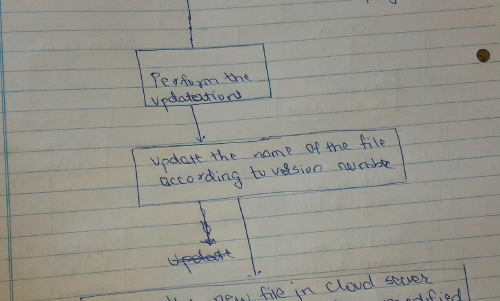 Perform the
updations
update the name of the file
according to version number
update
new file in cloud server
modified